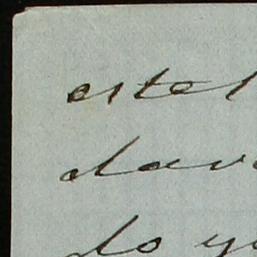 estel
dav
do yo